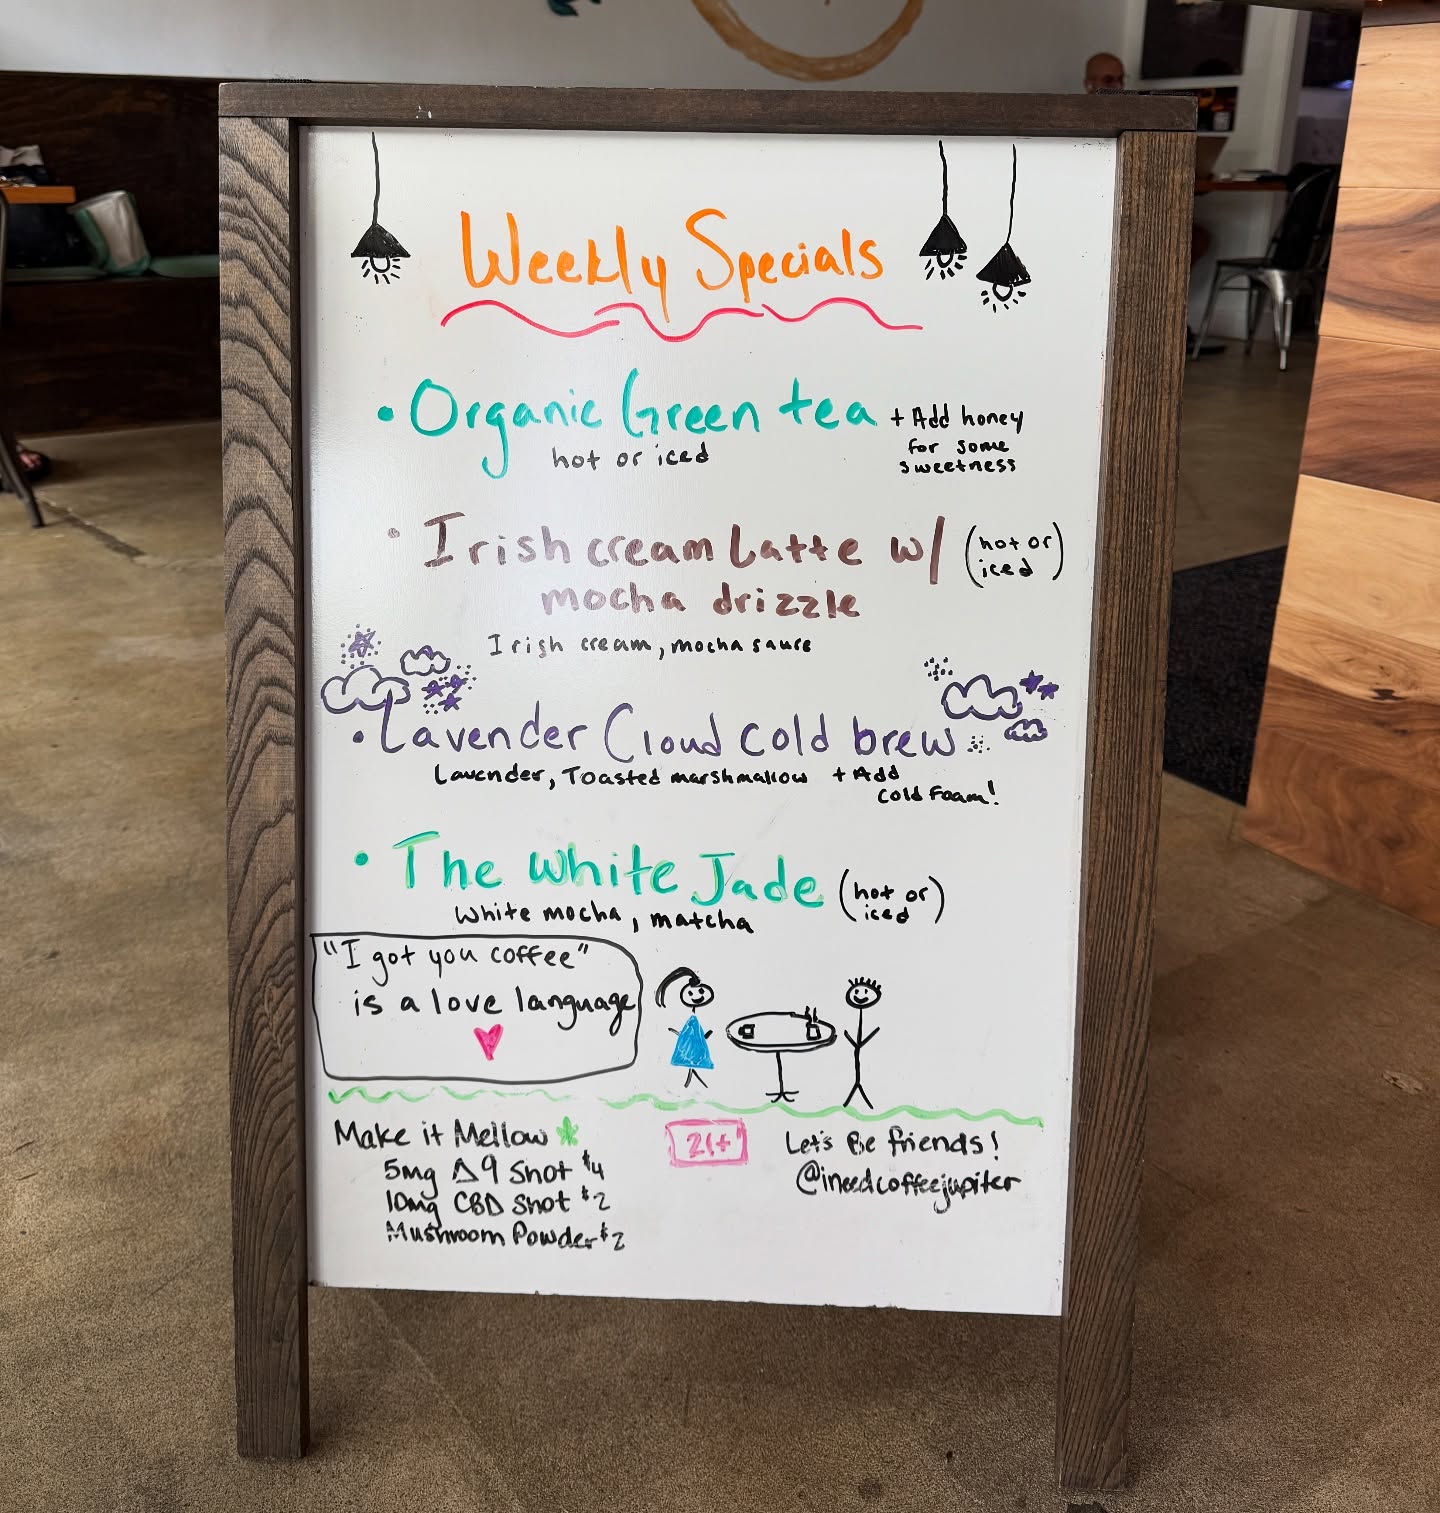 Weekly Specials
• Organic Green tea + Add honey
for some
sweetness
hot or iced
• Irish cream Latte w/ (hot or
iced)
mocha drizzle
Irish cream, mocha sauce
• Lavender Cloud cold brew
Lavender, Toasted marshmallow + Add
cold foam!
• The White Jade (hot or
iced)
White mocha, matcha
"I got you coffee"
is a love language
Make it Mellow
5mg Δ9 Shot $4
10mg CBD Shot $2
Mushroom Powder $2
21+
Let's Be friends!
@ineedcoffeejupiter